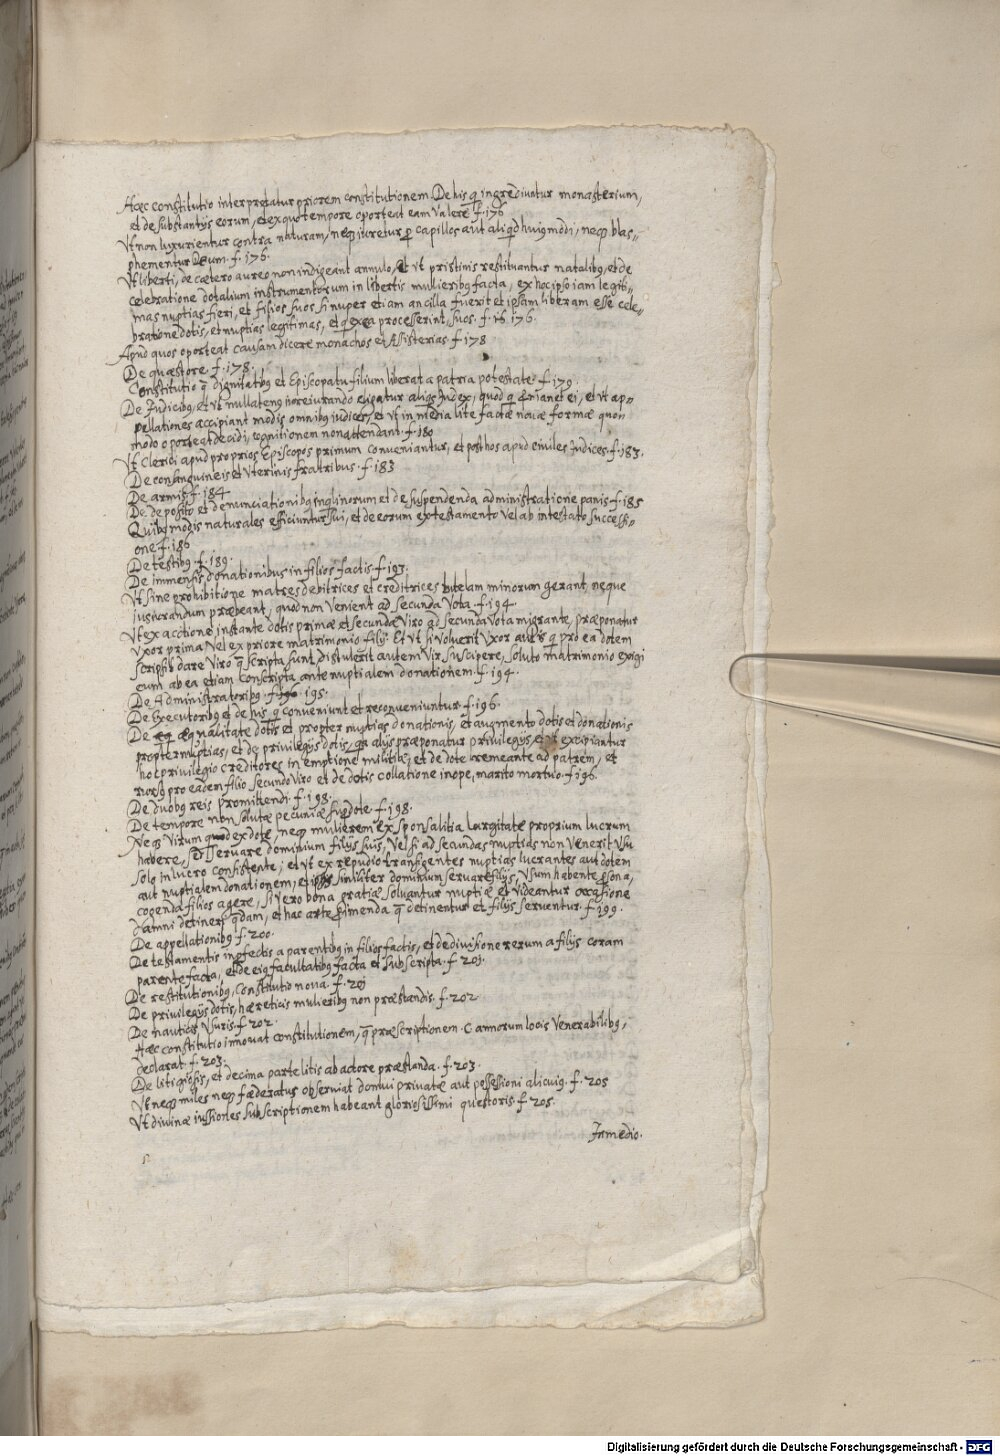 Hæc constitutio interpretatur priorem constitutionem De his q̃ ingrediuntur monasterium,
et de substantijs eorum, et ex quo tempore oporteat eam valere f. 176
Vt non luxurientur contra naturam, neq; iuretur p capillos aut aliq̇d huiusmodi, neq; blas-
phementur Deum. f. 176.
Vt liberti, de cætero aureo non indigeant annulo, Et vt pristinis restituantur natalibꝫ, et de
celebratione dotalium instrumentorum in libertis mulieribꝫ facta, ex hoc ipso iam legiti-
mas nuptias fieri, et filios suos si nuper etiam ancilla fuerit et ipsam liberam esse cele-
bratione dotis, et nuptias legitimas, et q̇ ex ea processerint, suos. f. 176.
Apud quos oporteat causam dicere monachos et Assisterias f. 178
De quæstore f. 178.
Constitutio q̃ dignitatibꝫ et Episcopatu filium liberat a patria potestate. f. 179.
De Judicibꝫ, et vt nullatenꝫ iureiurando eligatur aliq̇s Judex, quod q̇ manet ei, et vt ap-
pellationes accipiant modis omnibꝫ iudices, et vt in media lite factæ novæ formæ quo-
modo oporteat decidi, cognitionem non attendant. f. 180
Vt Clerici apud proprios Episcopos primum conveniantur, et post hos apud civiles Judices. f. 183.
De consanguineis et Vterinis fratribus. f. 183
De armis f. 184
De deposito et denunciationibꝫ inq̇linorum et de suspendenda administratione panis f. 185
Quibꝫ modis naturales efficiuntur sui, et de eorum ex testamento vel ab intestato successi-
one f. 186
De testibꝫ. f. 189.
De immensis donationibus in filios factis f. 193.
Vt sine prohibitione matres debitrices et creditrices tutelam minorum gerant, neque
iusiurandum præbeant, quod non venient ad secunda vota. f. 194.
Vt ex actione instante dotis primæ et secundæ viro ad secunda vota migrante, præponatur
Vxor prima vel ex priore matrimonio filij. Et vt si voluerit Vxor aut is q̇ pro ea dotem
scripsit dare viro q̃ scripta sunt, distulerit autem vir suscipere, soluto matrimonio exigi
eum ab ea etiam conscripta ante nuptialem donationem. f. 194.
De Administratoribꝫ. f. 195.
De Executoribꝫ et de his q̇ conveniunt et reconveniuntur. f. 196.
De æqualitate dotis et propter nuptias donationis, et augmento dotis et donationis
propter nuptias, et de privilegijs dotis, q̃ alijs præponatur privilegijs, et vt excipiantur
hoc privilegio creditores in emptione militiæ, et de dote remeante ad patrem, et
rursꝫ pro eadem filio secundo viro et de dotis collatione inope, marito mortuo. f. 196.
De duobꝫ reis promittendi. f. 198.
De tempore non solutæ pecuniæ super dote. f. 198.
Neq; virum quod ex dote, neq; mulierem ex sponsalitia largitate proprium lucrum
habere, sed servare dominium filijs suis, vel si ad secundas nuptias non venerit vsu
solo in lucro consistente; et vt ex repudio transigentes nuptias lucrantes aut dotem
aut nuptialem donationem, et ipsis similiter dominium servare filijs, vsum habente psona,
cogenda filios agere, si vero bona gratiæ solvantur nuptiæ et videantur occasione
damni detineri q̇dam, et hac arte pimenda q̃ detinentur et filijs serventur. f. 199.
De appellationibꝫ f. 200.
De testamentis impfectis a parentibꝫ in filios factis, et de divisione rerum a filijs coram
parente facta, et de eiꝫ facultatibꝫ facta et subscripta. f. 201.
De restitutionibꝫ, constitutio nova. f. 201
De privilegijs dotis, hæreticis mulieribꝫ non præstandis. f. 202
De nauticis vsuris f. 202.
Hæc constitutio innovat constitutionem, q̃ præscriptionem C annorum locis venerabilibꝫ,
declarat. f. 203.
De litigiosis, et decima parte litis ab actore præstanda. f. 203.
Vt neq; miles neq; fæderatus observiat domui privatæ aut possessioni alicuiꝫ. f. 205
Vt divinæ iussiones subscriptionem habeant gloriosissimi questoris. f. 205.
Jamedio.
Digitalisierung gefördert durch die Deutsche Forschungsgemeinschaft - DFG